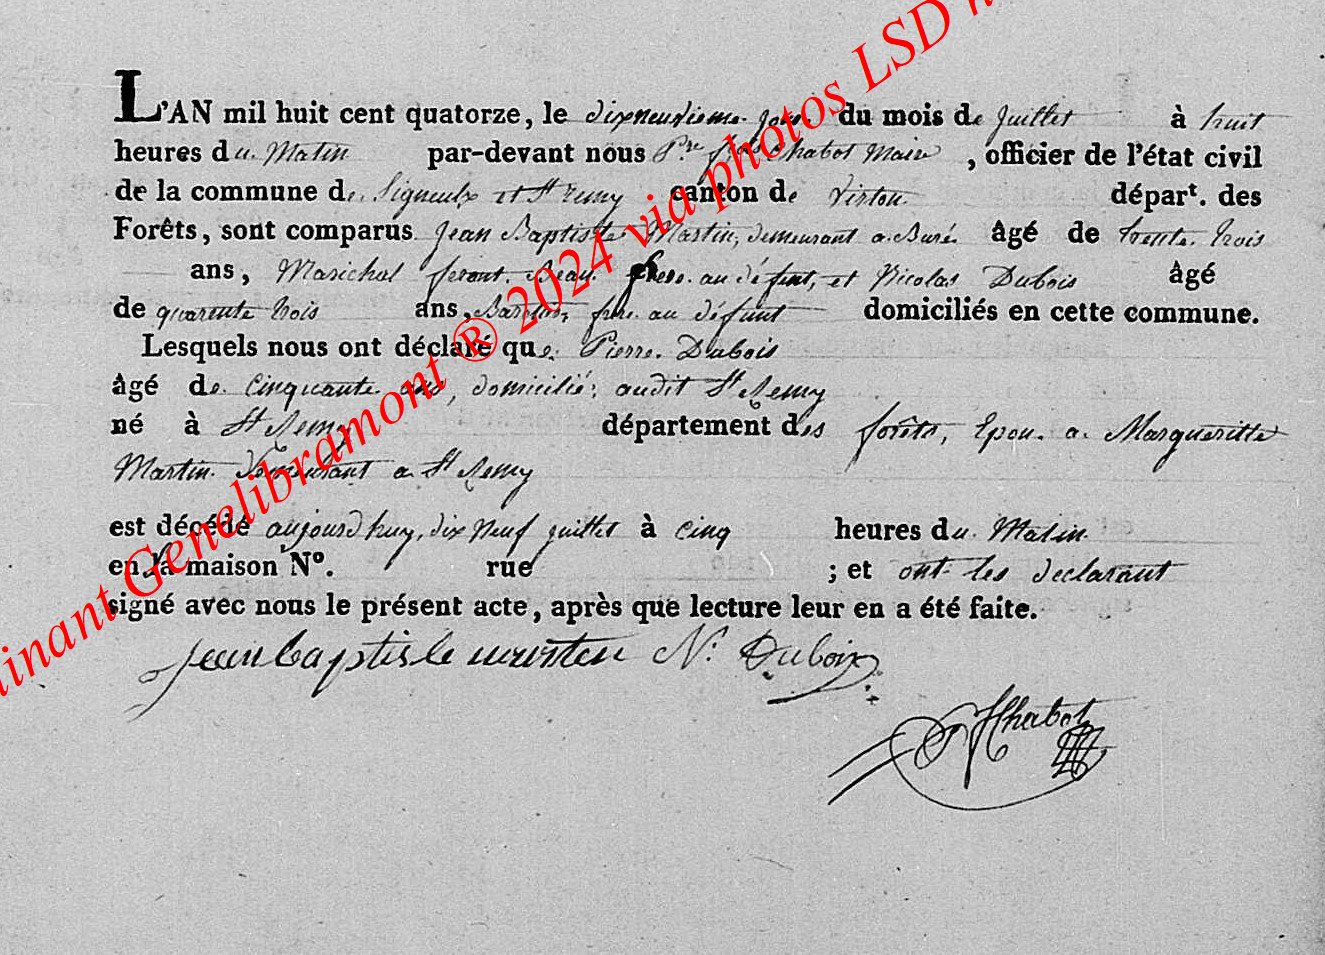 L'AN mil huit cent quatorze, le dixneuvieme jour du mois de juillet à huit
heures du Matin par-devant nous Pre frçois Chabot Maire, officier de l'état civil
de la commune de Signeulx et St remy canton de Virton départ. des
Forêts, sont comparus Jean Baptiste Martin, demeurant a Buré âgé de trente trois
ans, Marichal ferant Beau frere au défunt, et Nicolas Dubois âgé
de quarente trois ans, frere au défunt domiciliés en cette commune.
Lesquels nous ont déclaré que Pierre Dubois
âgé de cinquante ans, domicilié audit St Remy
né à St Remy département des forêts, Epou a Margueritte
Martin demeurant a St Remy
est décédé aujourdhuy, dix Neuf juillet à cinq heures du Matin
en la maison N°. rue ; et ont les declarant
signé avec nous le présent acte, après que lecture leur en a été faite.
jean baptiste N. Duboix
Chabot
inant Genelibramont ® 2024 via photos LSD